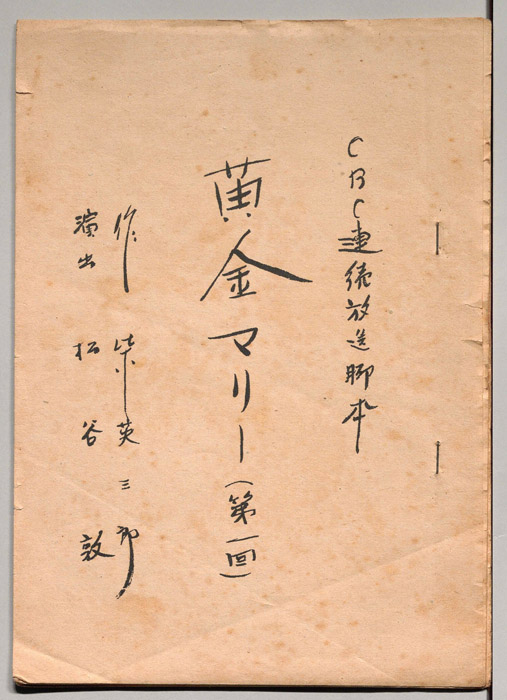 CBC連続放送脚本
黄金マリー(第一回)
作 柴英三郎
演出 松谷敦